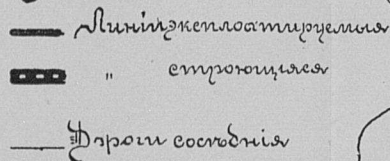 Линіи эксплоатируемыя
" строющіяся
Дороги сосѣднія